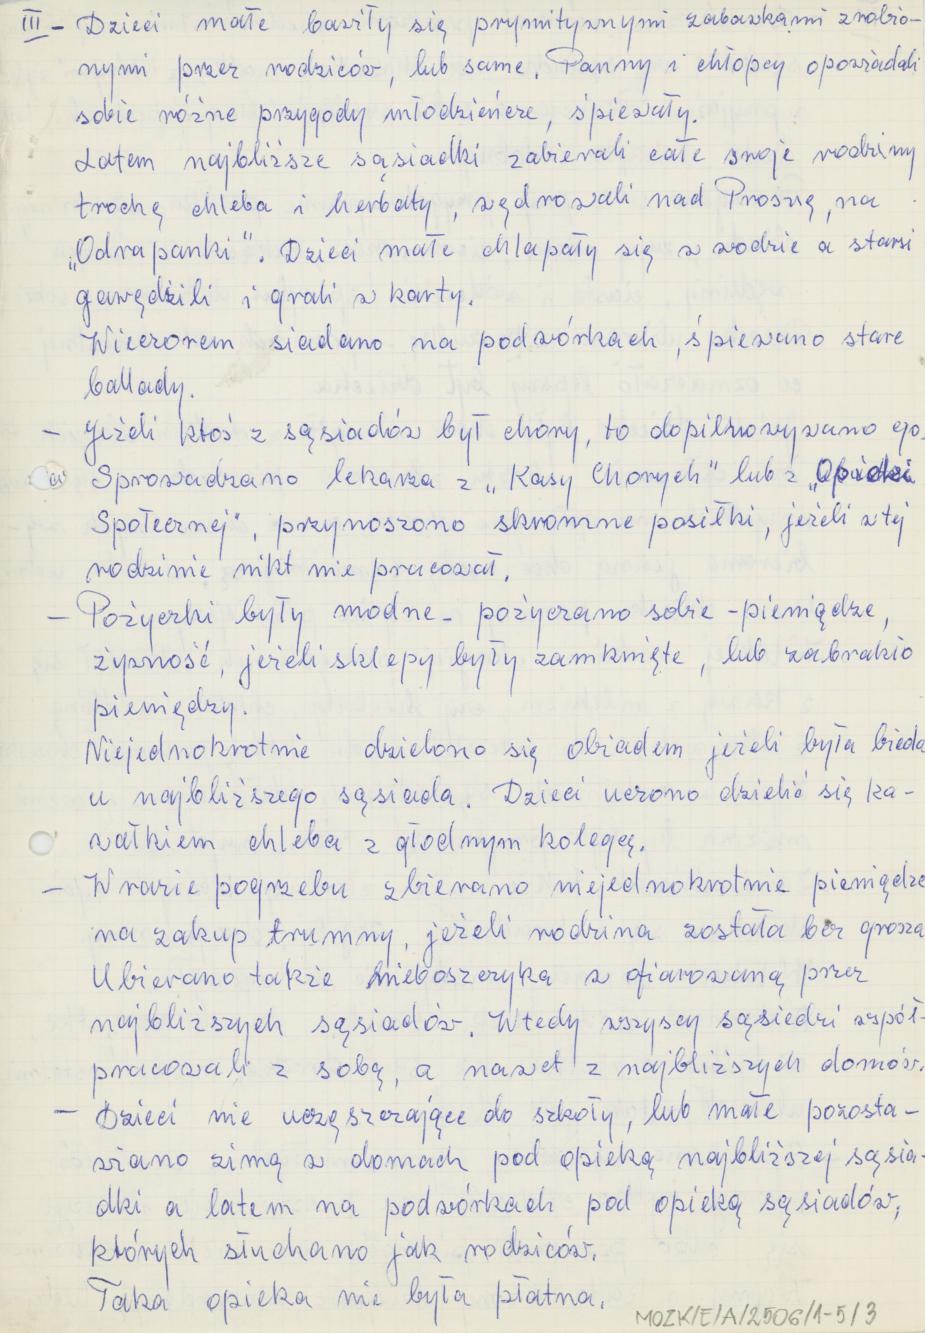 III - Dzieci małe bawiły się prymitywnymi zabawkami zrobio-
nymi przez rodziców, lub same. Panny i chłopcy opowiadali
sobie różne przygody młodzieńcze, śpiewały.
Latem najbliższe sąsiadki zabierali całe swoje rodziny
trochę chleba i herbaty, wędrowali nad Prosnę, na
„Odrapanki". Dzieci małe chlapały się w wodzie a starsi
gawędzili i grali w karty.
Wieczorem siadano na podwórkach, śpiewano stare
ballady.
- Jeżeli ktoś z sąsiadów był chory, to dopilnowywano go.
Sprowadzano lekarza z „Kasy Chorych" lub z „Opieki
Społecznej", przynoszono skromne posiłki, jeżeli w tej
rodzinie nikt nie pracował.
- Pożyczki były modne - pożyczano sobie - pieniądze,
żywność, jeżeli sklepy były zamknięte, lub zabrakło
pieniędzy.
Niejednokrotnie dzielono się obiadem jeżeli była bieda
u najbliższego sąsiada. Dzieci uczono dzielić się ka-
wałkiem chleba z głodnym kolegą.
- W razie pogrzebu zbierano niejednokrotnie pieniądze
na zakup trumny, jeżeli rodzina została bez grosza
Ubierano także nieboszczyka w ofiarowaną przez
najbliższych sąsiadów. Wtedy wszyscy sąsiedzi współ-
pracowali z sobą, a nawet z najbliższych domów.
- Dzieci nie uczęszczające do szkoły, lub małe pozosta-
wiano zimą w domach pod opieką najbliższej sąsia-
dki a latem na podwórkach pod opieką sąsiadów,
których słuchano jak rodziców.
Taka opieka nie była płatna.
MOZK/E/A/2506/1-5/3